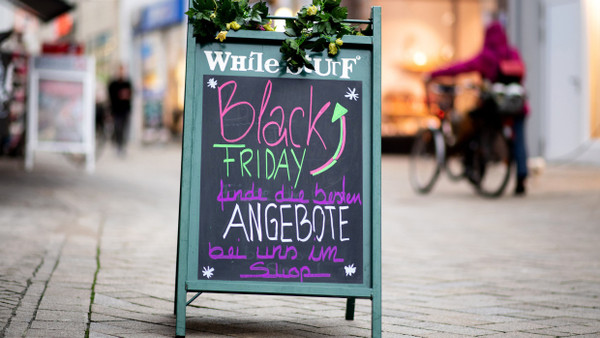 WHITE STUFF
Black
FRIDAY
finde die besten
ANGEBOTE
bei uns im
Shop